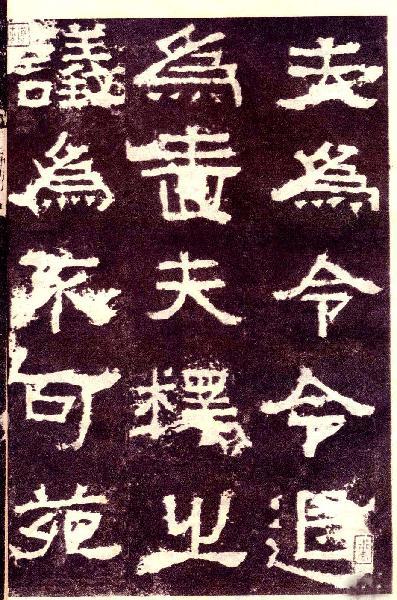 夫為令令退
為嗇夫釋之
議為不可苑